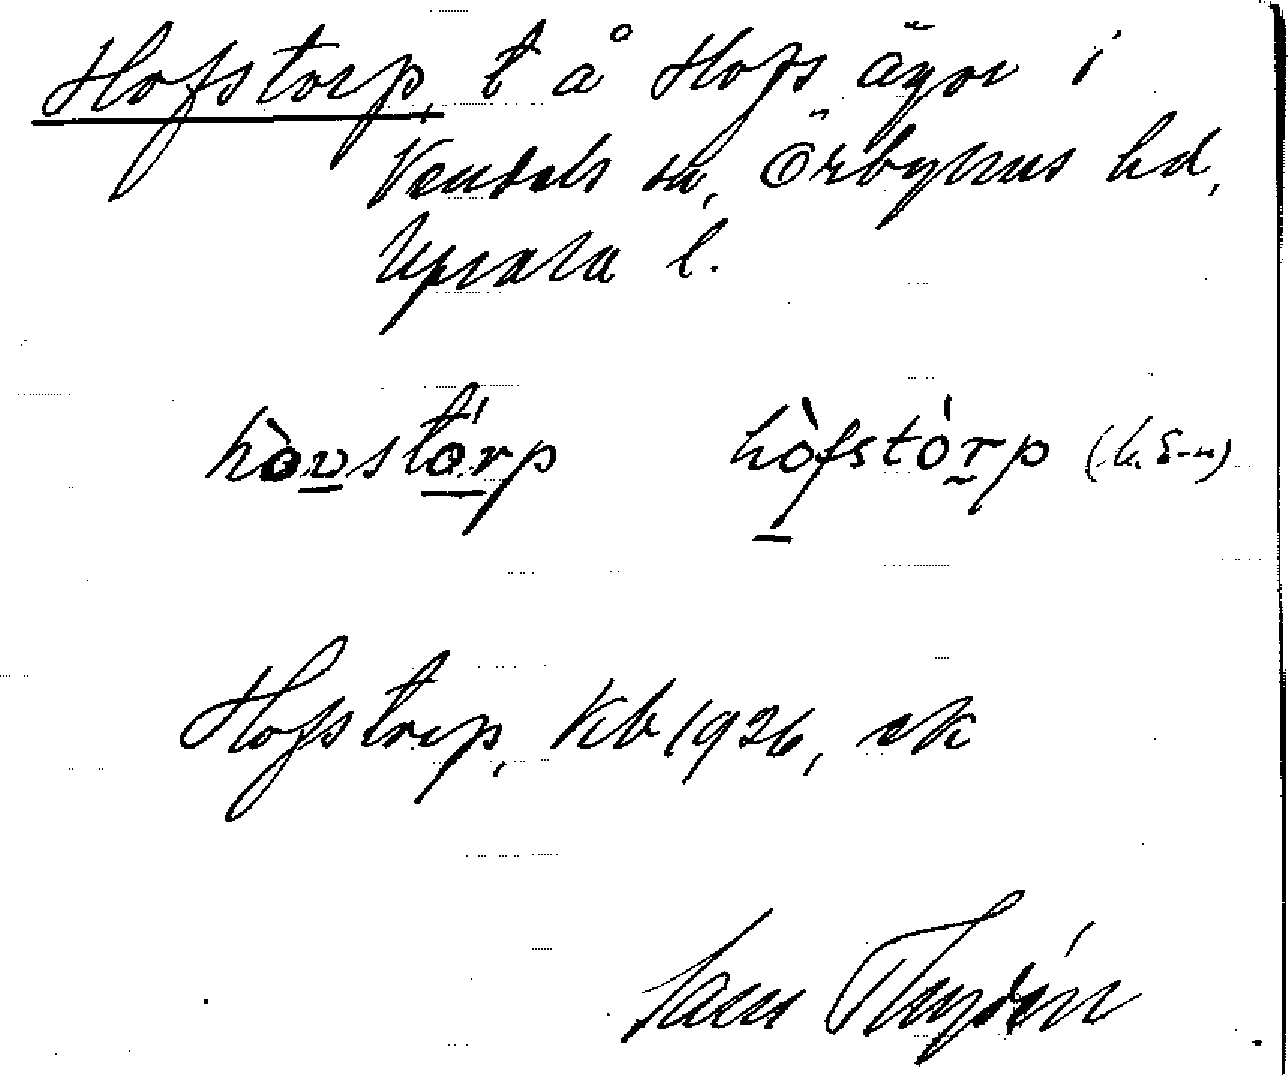 Hofstorp, t å Hofs ägor i
Vendels sn, Örbyhus hd,
Upsala l.
hòvstórp hòfstórp
Hofstorp, Kb 1926, sk